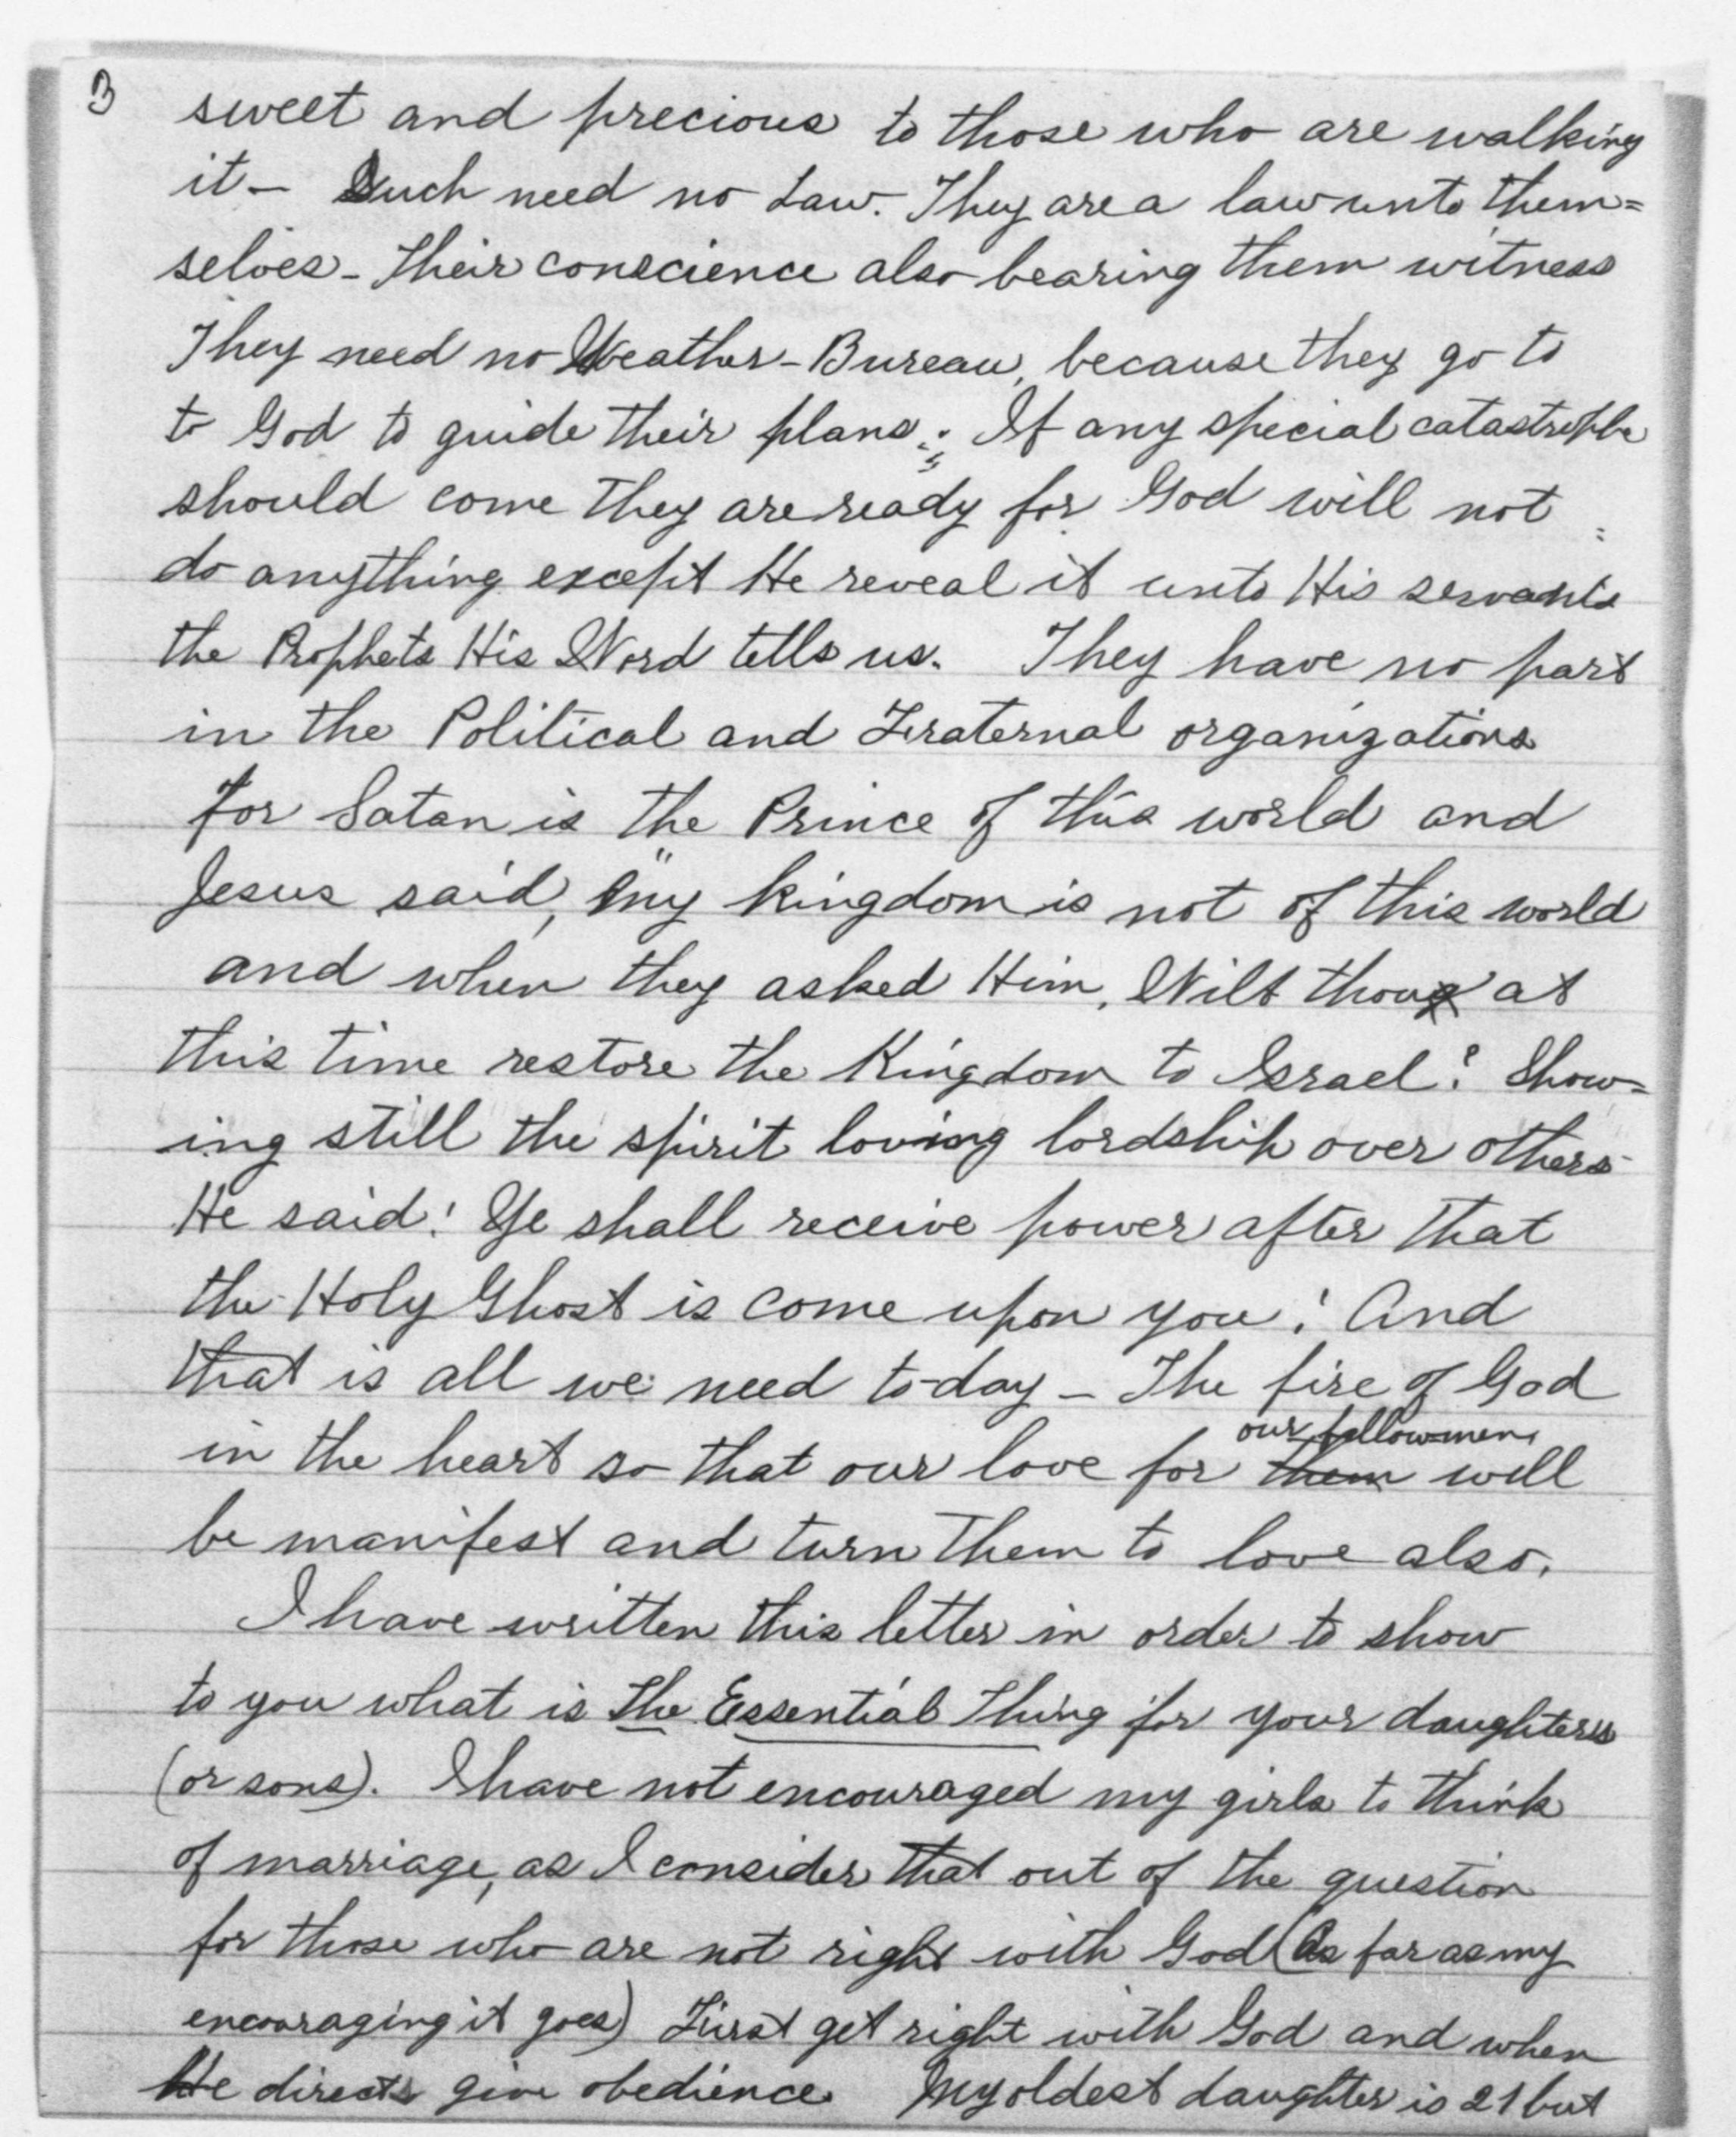 3
sweet and precious to those who are walking
it - Such need no Law. They are a law unto them=
selves - Their conscience also bearing them witness
They need no Weather-Bureau, because they go to
to God to guide their plans; If any special catastrophe
should come they are ready for God will not
do anything except He reveal it unto His servants
the Prophets His Word tells us. They have no part
in the Political and Fraternal organizations
for Satan is the Prince of this world and
Jesus said, "My kingdom is not of this world
and when they asked Him, Wilt thou at
this time restore the Kingdom to Israel? Show=
ing still the spirit loving lordship over others
He said: Ye shall receive power after that
the Holy Ghost is come upon you! And
that is all we need to-day - The fire of God
our fellowmen
in the heart so that our love for them will
be manifest and turn them to love also.
I have written this letter in order to show
to you what is The Essential Thing for your daughters
(or sons). I have not encouraged my girls to think
of marriage, as I consider that out of the question
for those who are not right with God (As far as my
encouraging it goes) First get right with God and when
He directs give obedience My oldest daughter is 21 but